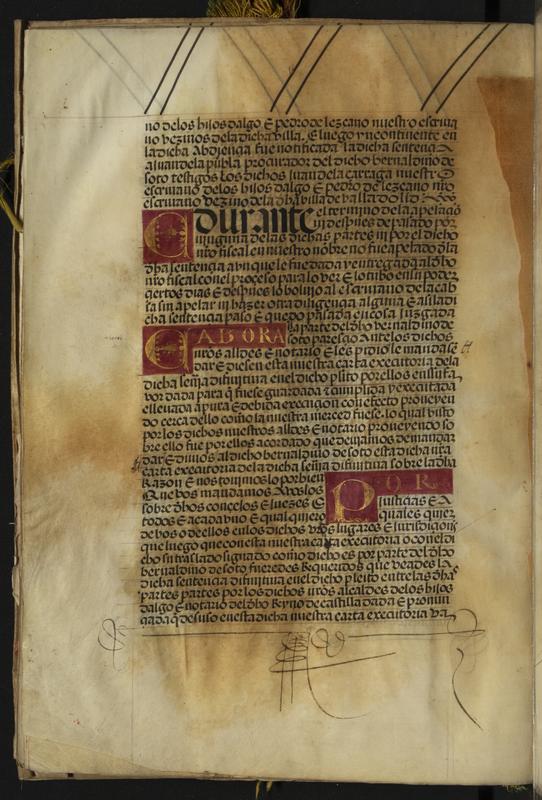 no delos hijos dalgo E pedro de lezcano nuestro escriua
no vezinos dela dicha villa. E luego yncontinente en
la dicha Abdiençia fue notificada la dicha sentençia A
a juan dela puebla procurador del dicho bernaldino de
soto testigos los dichos juan dela carraga nuestro
escriuano delos hijos dalgo E pedro de lezcano nro
escriuano vezino dela dha villa de valladolid
E durante el termino dela apelaçiō
ni despues de pasado por
ninguna delas dichas partes ni por el dicho
nro fiscal en nuestro nōbre no fue apelado dla
dha sentençia avnque le fue dada y entregada al dho
nro fiscal con el proçeso para lo ver E lo tubo en su poder
çiertos dias E despues lo boluio al escriuano dela cab
sa sin apelar ni hazer otra diligençia alguna E asi la di
cha sentençia paso E quedo pasada en cosa juzgada
E ABORA la parte del dho bernaldino de
soto paresçio Ante los dichos
nros alldes E notario E les pidio le mandasē
dar E diesen esta nuestra carta executoria dela
dicha sentēçia difinitiua en el dicho plito por ellos en su fa
vor dada para q̄ fuese guardada E cunplida y executada
e lleuada a pura E debida execuçion con efecto proueyen
do çerca dello como la nuestra merçed fuese. lo qual visto
por los dichos nuestros alldes E notario proueyendo so
bre ello fue por ellos acordado que deuiamos de mandar
dar E dimos al dicho bernaldino de soto esta dicha nra
carta executoria dela dicha sentēçia difinitiua sobre la dha
Razon E nos touimos lo por bien POR
Que vos mandamos A vos los justiçias E A
sobre dhos conçejos E Juezes E quales quier
todos E a cada vno E qual quiero
de vos o de ellos en los dichos vros lugares E jurisdiçiones
que luego que con esta nuestra carta executoria o con el di
cho su traslado signado como dicho es por parte del dho
bernaldino de soto fueredes Requeridos que veades la
dicha sentençia difinitiua en el dicho pleito entre las dhas
partes partes por los dichos nros alcaldes delos hijos
dalgo E notario del dho Reyno de castilla dada E pronun
çiada q̄ de suso en esta dicha nuestra carta executoria va